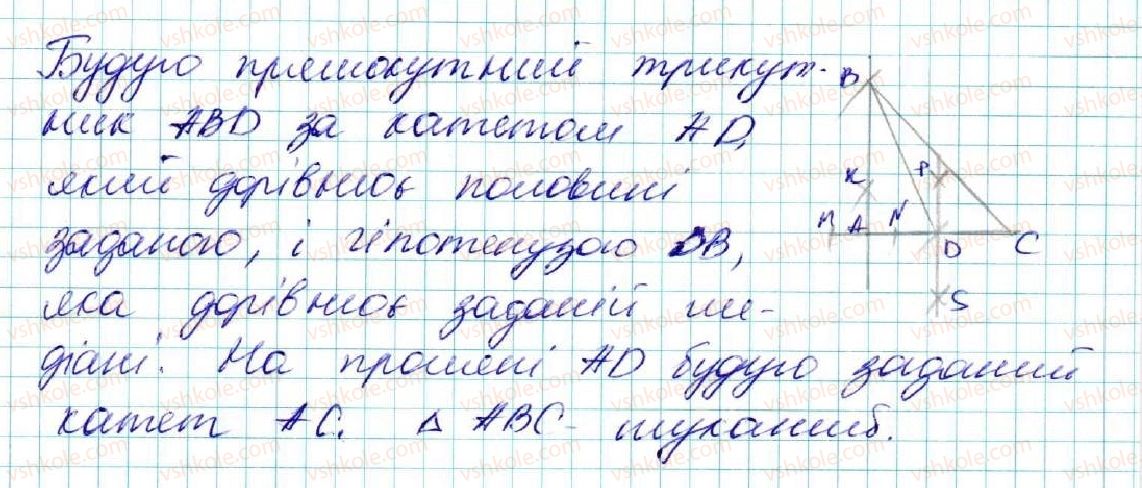 Будую прямокутний трикут-
ник ABD за катетом AD,
який дорівнює половині
заданого, і гіпотенузою DB,
яка дорівнює заданій ме-
діані. На промені AD будую заданий
катет AC. △ ABC - шуканий.
B
K
P
M A N D C
S
vshkole.com